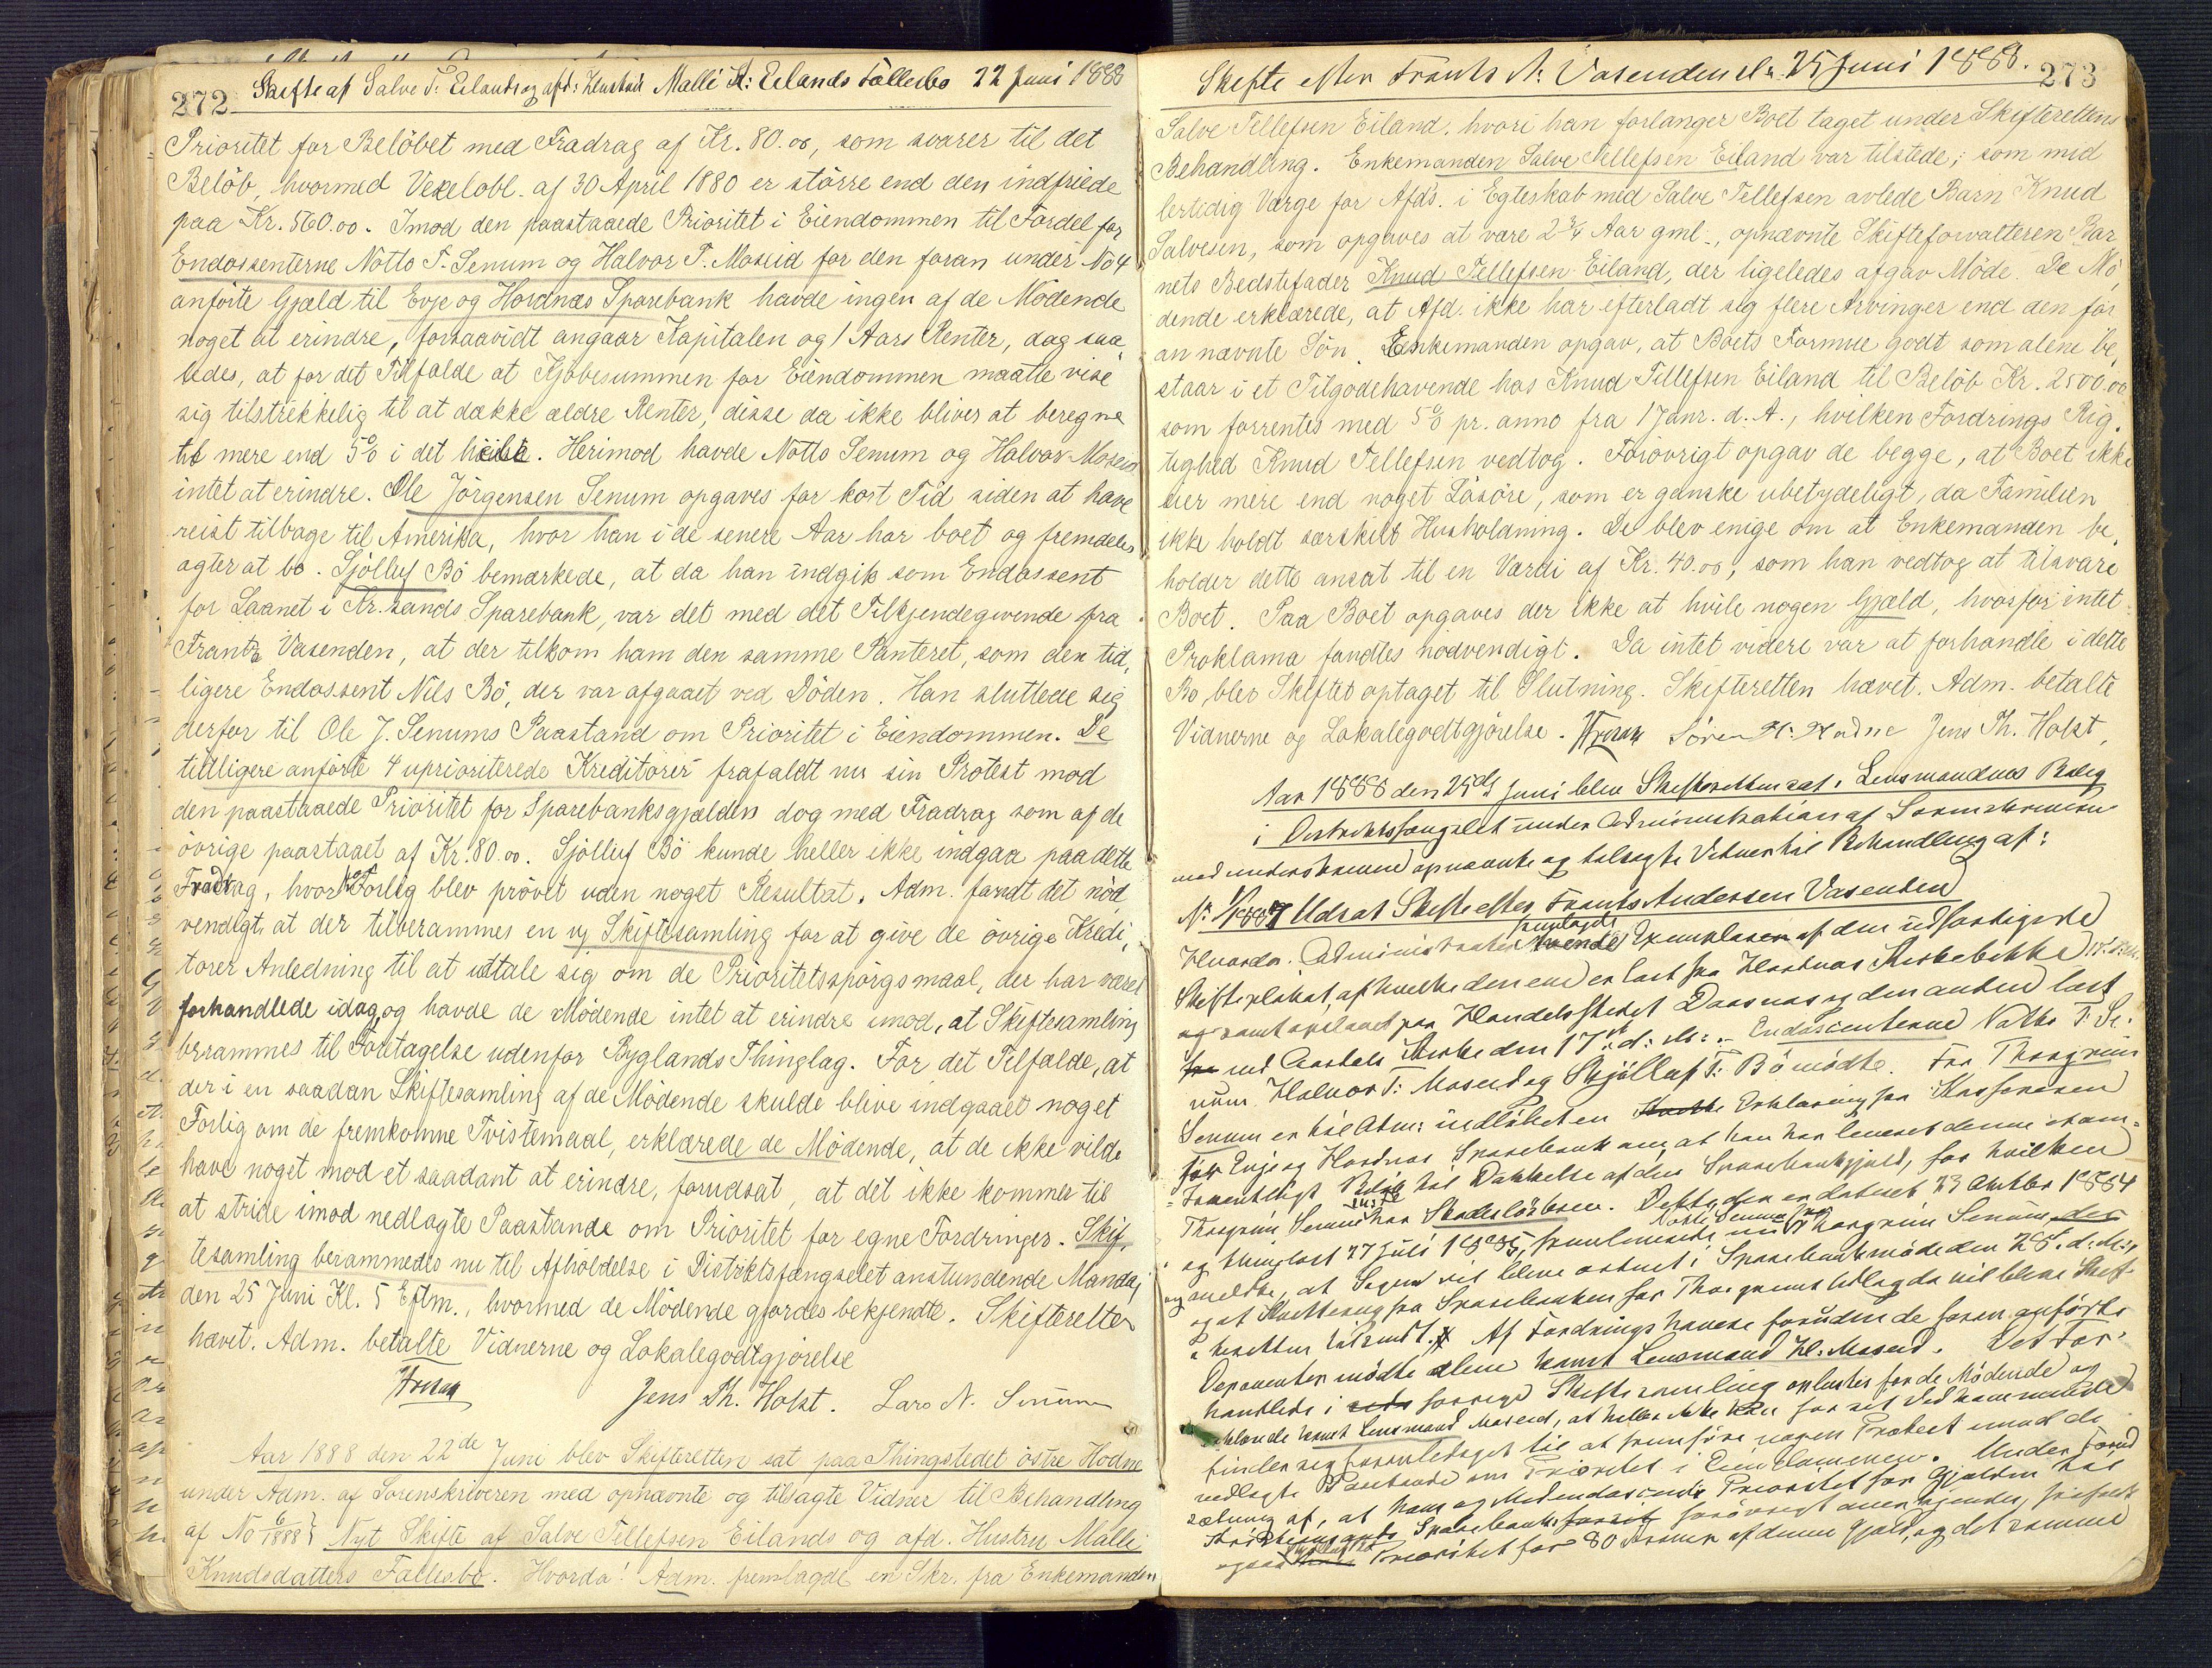 272
Skifte af Salve T. Eilands og afd. Hustrus Malli K: Eilands Fællesbo 22 Juni 1888
Prioritet for Beløbet med Fradrag af Kr. 80.00, som svarer til det
Beløb, hvormed Vexelobl. af 30 April 1880 er større end den indfriede
paa Kr. 560.00. Imod den paastaaede Prioritet i Eiendommen til Fordel for
Endossenterne Notto T. Senum og Halvor T. Moseid for den foran under No 4
anførte Gjæld til Evje og Hordnæs Sparebank havde ingen af de Mødende
noget at erindre, forsaavidt angaar Kapitalen og 1 Aars Renter, dog saa
ledes, at for det Tilfælde at Kjøbesummen for Eiendommen maatte vise
sig tilstrekkelig til at dække ældre Renter, disse da ikke bliver at beregne
til mere end 5% i det hele. Herimod havde Notto Senum og Halvor Moseid
intet at erindre. Ole Jörgensen Senum opgaves for kort Tid siden at have
reist tilbage til Amerika, hvor han i de senere Aar har boet og fremdeles
agter at bo. Sjølluf Bø bemærkede, at da han indgik som Endossent
for Laanet i Kr.sands Sparebank, var det med det Tilkjendegivende fra
Frants Vasenden, at der tilkom ham den samme Panteret, som den tid,
ligere Endossent Nils Bø, der var afgaaet ved Døden. Han sluttede sig
derfor til Ole J. Senums Paastand om Prioritet i Eiendommen. De
tidligere anførte 4 uprioriterede Kreditorer frafaldt nu sin Protest mod
den paastaaede Prioritet for Sparebanksgjælden dog med Fradrag som af de
øvrige paastaaet af Kr. 80.00. Sjølluf Bø kunde heller ikke indgaa paa dette
Fradrag, hvorfor Forlig blev prøvet uden noget Resultat. Adm. fandt det nød
vendigt, at der tilberammes en ny Skiftesamling for at give de øvrige Kredi,
torer Anledning til at udtale sig om de Prioritetsspørgsmaal, der har været
forhandlede idag, og havde de Mødende intet at erindre imod, at Skiftesamling
berammes til Foretagelse udenfor Byglands Thinglag. For det Tilfælde, at
der i en saadan Skiftesamling af de Mødende skulde blive indgaaet noget
Forlig om de fremkomne Tvistemaal, erklærede de Mødende, at de ikke vilde
have noget mod et saadant at erindre, forudsat, at det ikke kommer til
at stride imod nedlagte Paastande om Prioritet for egne Fordringer. Skif,
tesamling berammedes nu til Afholdelse i Distriktsfængselet anstundende Mandag
den 25 Juni Kl. 5 Eftm., hvormed de Mødende gjordes bekjendte. Skifteretten
hævet. Adm. betalte Vidnerne og Lokalegodtgjørelse
Jens Th. Holst. Lars N. Senum
Aar 1888 den 22de Juni blev Skifteretten sat paa Thingstedet østre Hodne
under Adm. af Sorenskriveren med opnævnte og tilsagte Vidner til Behandling
af No 6/1888: Nyt Skifte af Salve Tellefsen Eilands og afd. Hustru Malli
Knudsdatters Fællesbo. Hvorda! Adm. fremlagde en Skr. fra Enkemanden
Skifte efter Frants A: Vasenden d. 25 Juni 1888.
273
Salve Tellefsen Eiland, hvori han forlanger Boet taget under Skifterettens
Behandling. Enkemanden Salve Tellefsen Eiland var tilstede; som mid
lertidig Værge for Afd's. i Egteskab med Salve Tellefsen avlede Barn Knud
Salvesen, som opgaves at være 2 3/4 Aar gml., opnævnte Skifteforvalteren Bar
nets Bedstefader Knud Tellefsen Eiland, der ligeledes afgav Møde. De Mø,
dende erklærede, at Afd. ikke har efterladt sig flere Arvinger end den for
an nævnte Søn. Enkemanden opgav, at Boets Formue godt som alene be,
staar i et Tilgodehavende hos Knud Tellefsen Eiland til Beløb Kr. 2500.00
som forrentes med 5% pr. anno fra 1 Janr. d. A., hvilken Fordrings Rig,
tighed Knud Tellefsen vedtog. Forøvrigt opgav de begge, at Boet ikke
eier mere end noget Løsøre, som er ganske ubetydeligt, da Familien
ikke holdt særskilt Husholdning. De blev enige om at Enkemanden be,
holder dette ansat til en Værdi af Kr. 40.00, som han vedtog at tilsvare
Boet. Paa Boet opgaves der ikke at hvile nogen Gjæld, hvorfor intet
Proklama fandtes nødvendigt. Da intet videre var at forhandle i dette
Bo, blev Skiftet optaget til Slutning. Skifteretten hævet. Adm. betalte
Vidnerne og Lokalegodtgjørelse. Søren H. Hodne Jens Th. Holst,
Aar 1888 den 25de Juni blev Skifteretten sat i Lensmandens Bolig
i Distriktsfængslet under Administration af Sorenskriveren
med underskrevne opnævnte og tilsagte Vidner til Behandling af:
No 1/1887 Udsat Skifte efter Frants Andersen Vasenden
Hvorda. Administrator fremlagde Exemplarer af den udfærdigede
Skifteplakat, af hvilke den ene er læst fra Hordnæs Kirkebakke
og samt opslaaet paa Handelsstedet Daasnæs og den anden læst
ved Aardals Kirke den 17. d. M. Endossenterne Notto T. Se,
num Halvor T: Moseid og Skjølluf T: Bø mødte. Fra Thorgrim
Senum er til Adm: indløbet en Erklæring fra Kassereren
for Evje og Hordnæs Sparebank om, at han har leveret denne
Beløb til Dækkelse af den Sparebankgjæld, for hvilken
Thorgrim Senum har Skadesløsbrev. Dette, der er dateret 23 Oktbr 1884
og thinglæst 27 Juli 1885, fremlevere nu Notto Senum fra Thorgrim Senum
og meldte, at Sagen vil blive ordnet i Sparebankmøde den 28. d. M.,
og at Kvittering fra Sparebanken for Thorgrims Udlæg da vil blive Skif
teretten tilsendt. Af Fordringshavere foruden de foran anførte
Deponenter mødte alene konst. Lensmand H: Moseid. Det For,
handlede i forrige Skiftesamling oplæstes for de Mødende og
konst. Lensmand Moseid, at heller ikke han for sit Vedkommende
finder sig foranlediget til at fremføre nogen Protest imod de
nedlagte Paastande om Prioritet i Eiendommen. Under Forud
sætning af, at hans og Medendossents Prioritet for Gjælden til
Kristianssands Sparebank forøvrigt anerkjendes, frafaldt
ogsaa Prioritet for 80 Kroner af denne Gjæld, og det samme